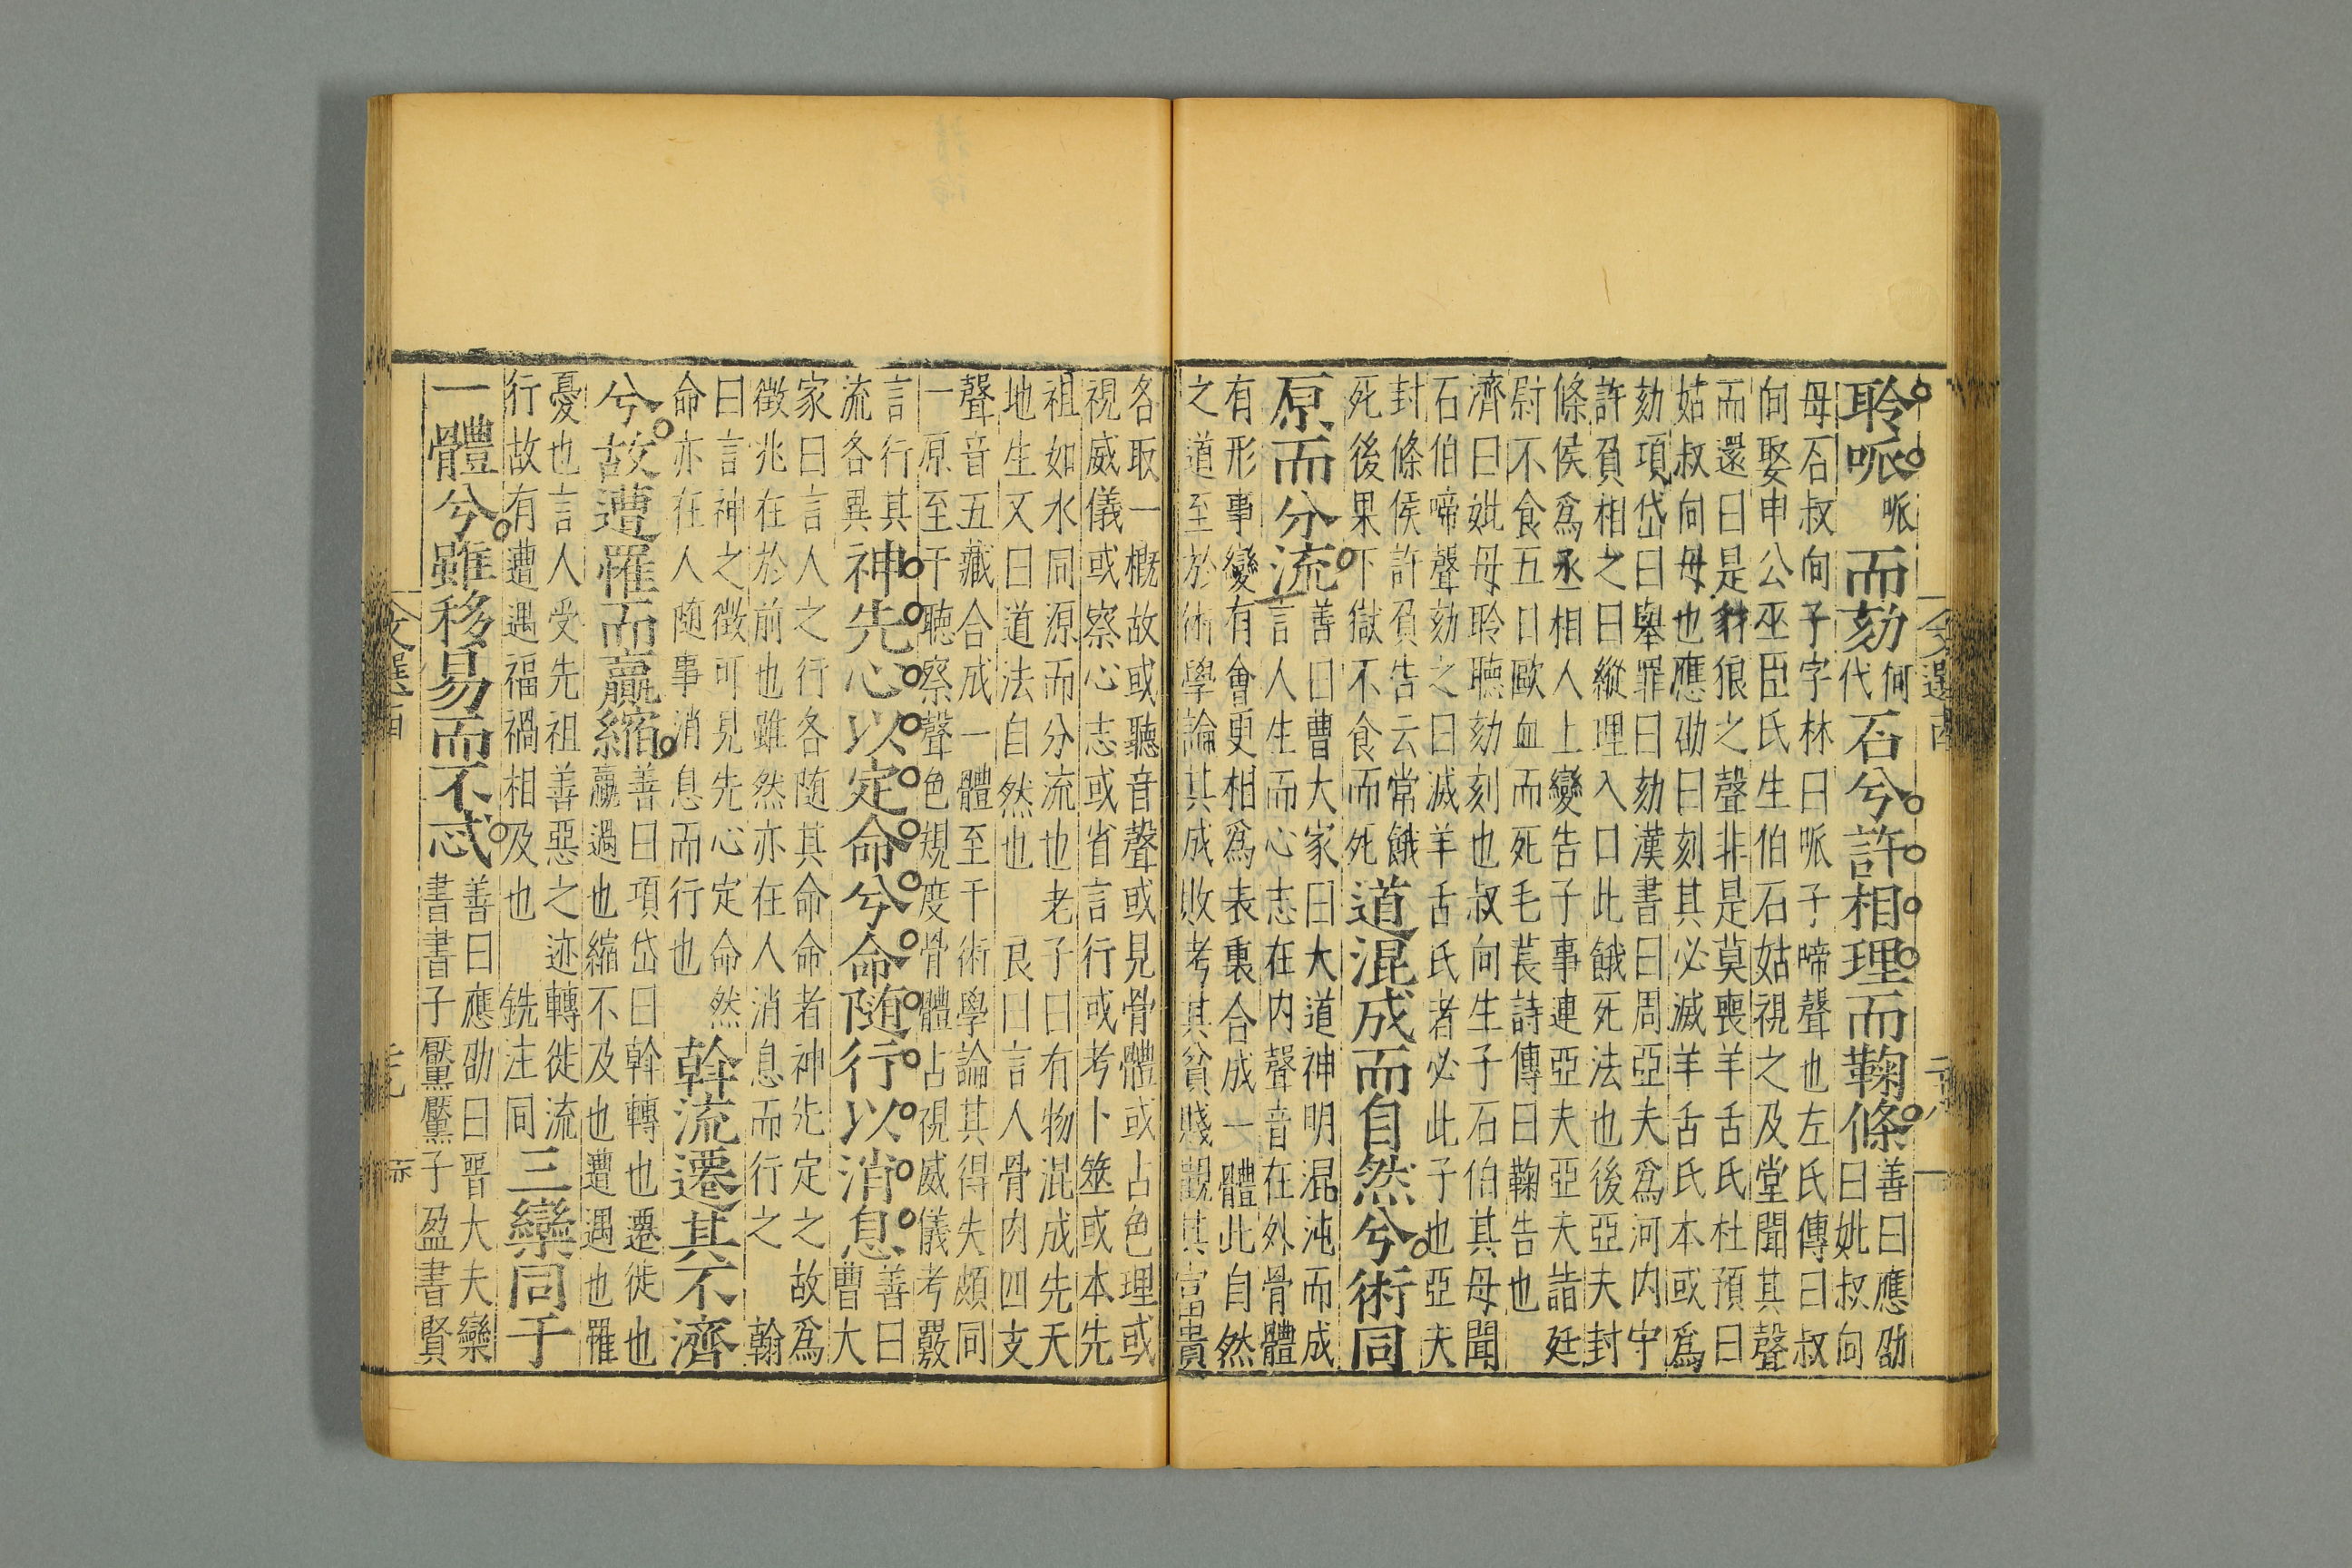 聆哌哌而劾何代石兮許相理而鞠條善曰應劭曰妣叔向
母石叔向子字林曰哌子啼聲也左氏傳曰叔
向娶申公巫臣氏生伯石姑視之及堂聞其聲
而還曰是豺狼之聲非是莫喪羊舌氏杜預曰
姑叔向母也應劭曰刻其必滅羊舌氏本或爲
劾項岱曰舉罪曰劾漢書曰周亞夫爲河内守
許負相之曰縱理入口此餓死法也後亞夫封
條侯爲丞相人上變告子事連亞夫亞夫詣廷
尉不食五日歐血而死毛萇詩傳曰鞠告也
濟曰妣母聆聽劾刻也叔向生子石伯其母聞
石伯啼聲劾之曰滅羊舌氏者必此子也亞夫
封條侯許負告云常餓
死後果下獄不食而死道混成而自然兮術同
原而分流善曰曹大家曰大道神明混沌而成
言人生而心志在内聲音在外骨體
有形事變有會更相爲表裏合成一體此自然
之道至於術學論其成敗考其貧賤觀其富貴
各取一概故或聽音聲或見骨體或占色理或
視威儀或察心志或省言行或考卜筮或本先
祖如水同源而分流也老子曰有物混成先天
地生又曰道法自然也 良曰言人骨肉四支
聲音五藏合成一體至于術學論其得失頗同
一原至于聽察聲色規度骨體占視威儀考覈
言行其
流各異神先心以定命兮命隨行以消息善曰
曹大
家曰言人之行各隨其命命者神先定之故爲
徵兆在於前也雖然亦在人消息而行之 翰
曰言神之徵可見先心定命然
命亦在人隨事消息而行也斡流遷其不濟
兮故遭罹而嬴縮善曰項岱曰斡轉也遷徙也
嬴過也縮不及也遭遇也罹
憂也言人受先祖善惡之迹轉徙流
行故有遭遇福禍相及也 銑注同三欒同于
一體兮雖移易而不忒善曰應劭曰晉大夫欒
書書子黶黶子盈書賢